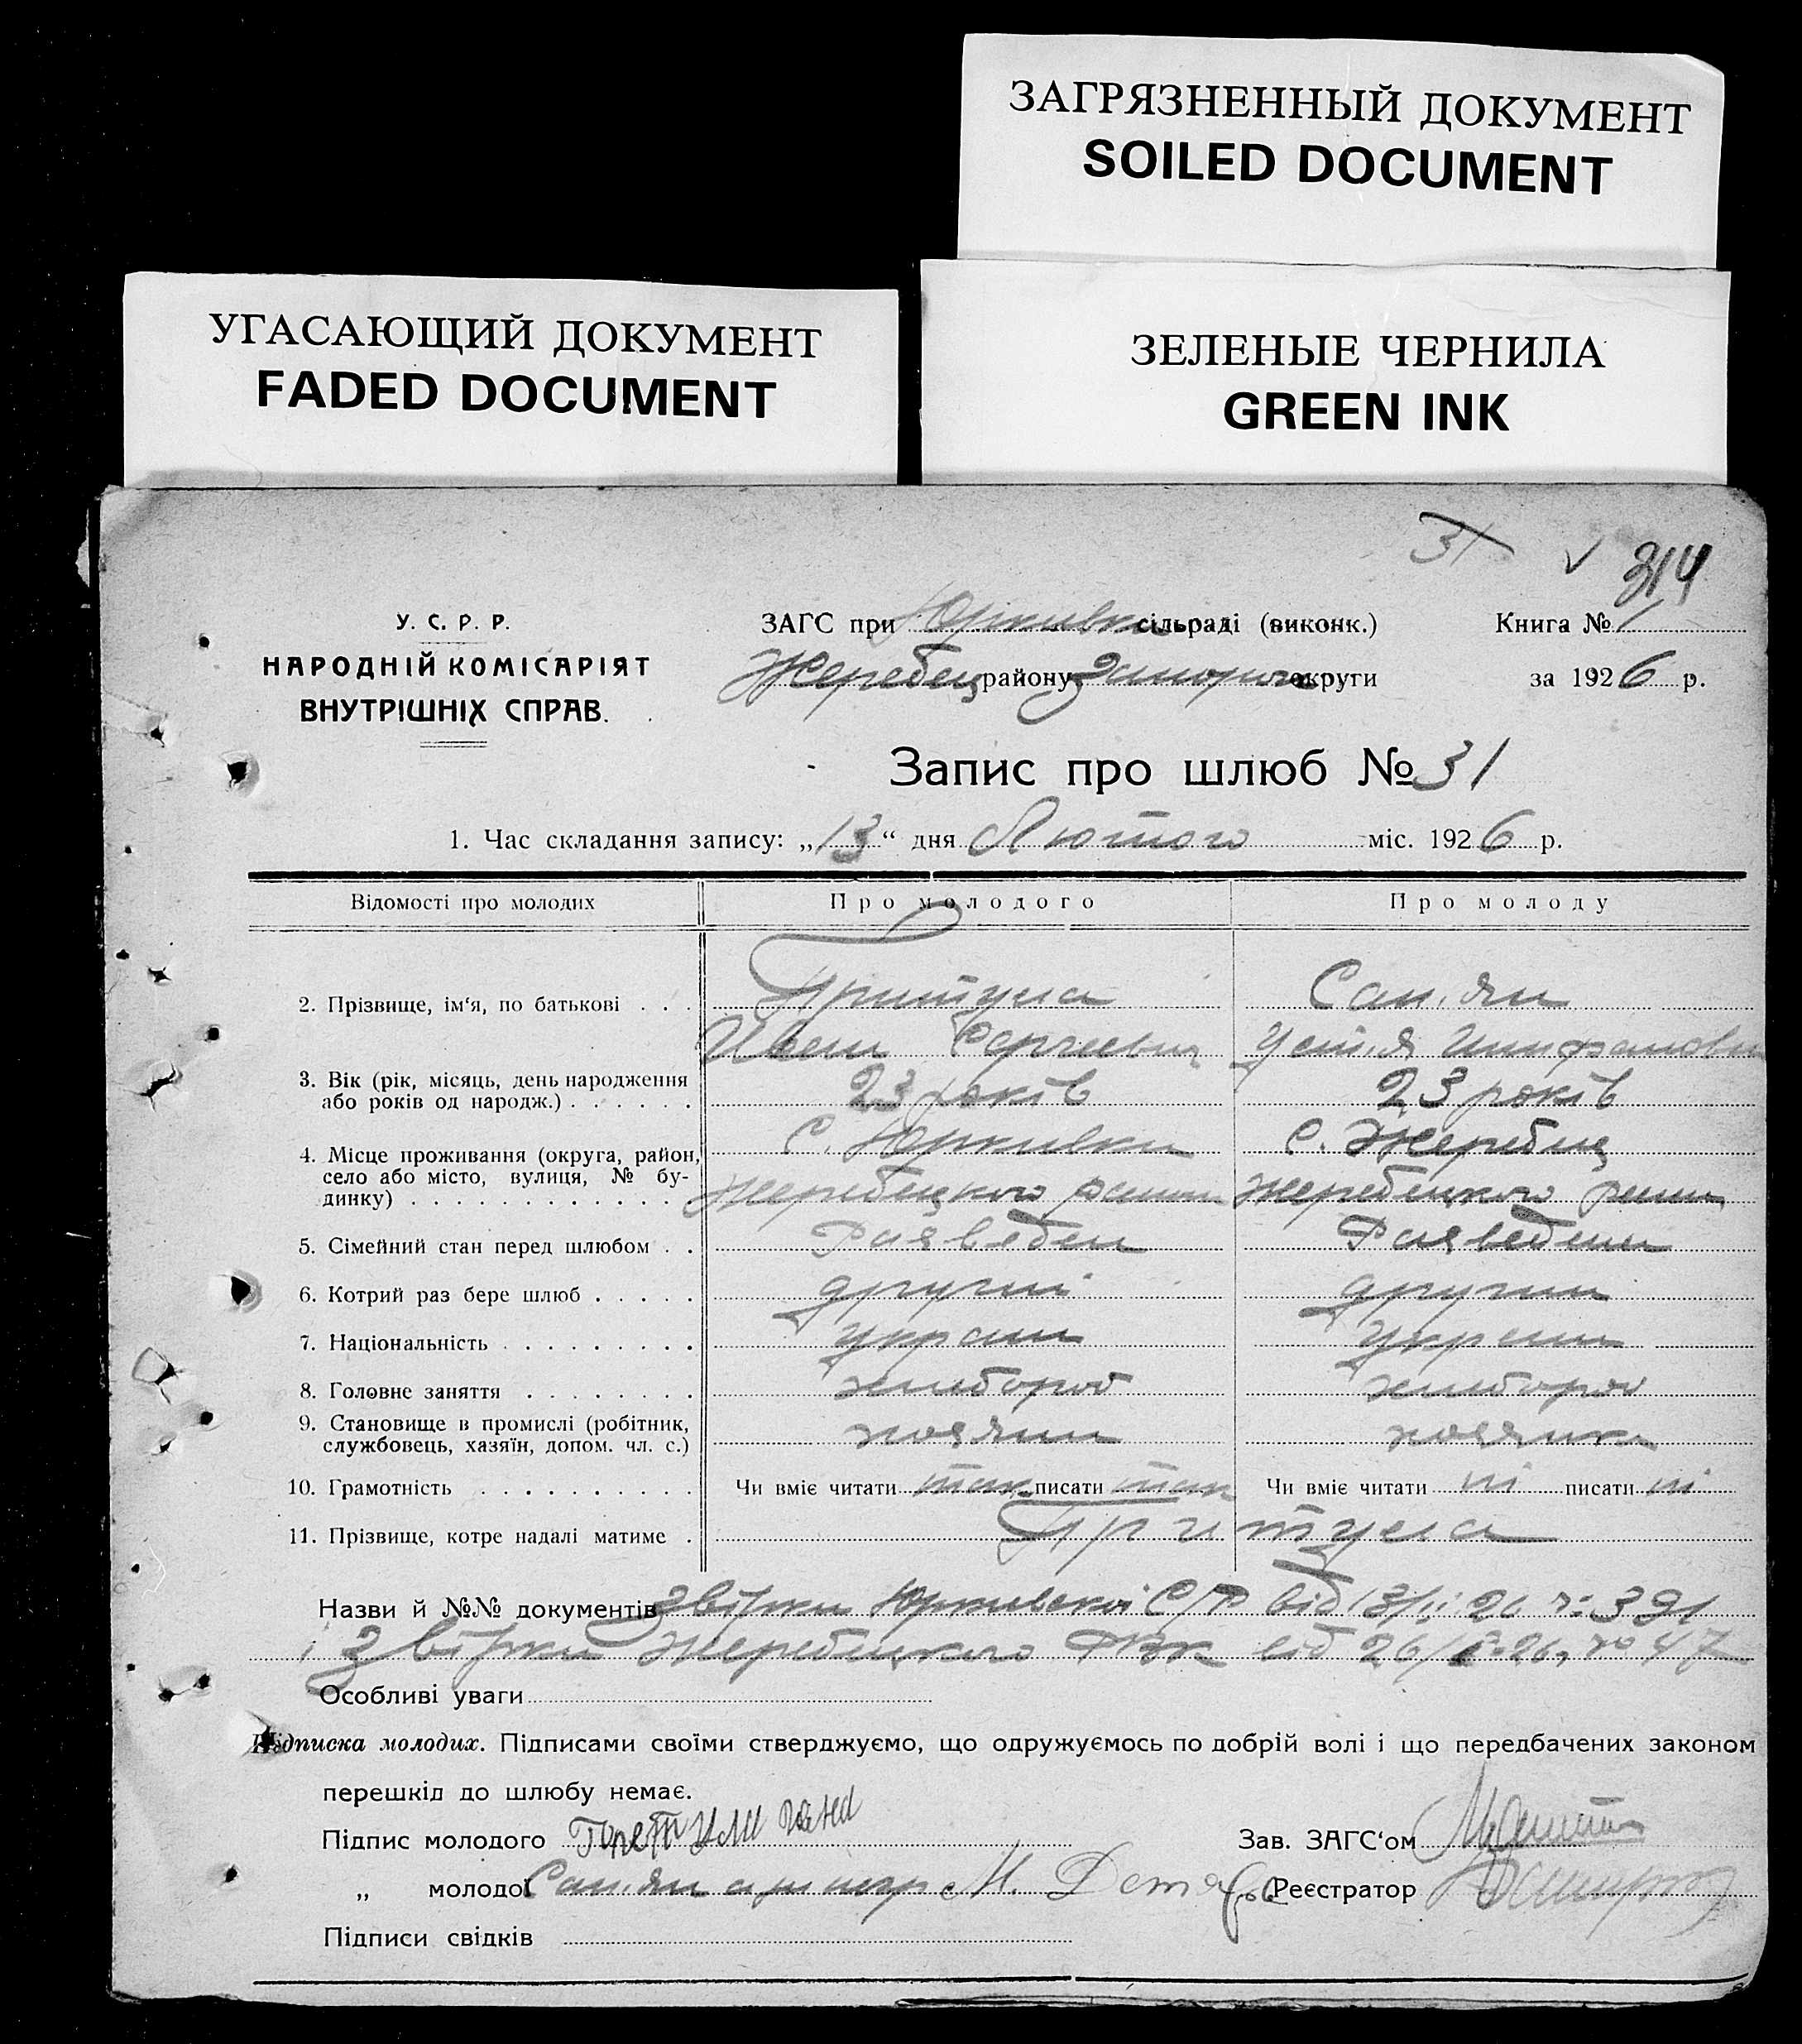 ЗАГРЯЗНЕННЫЙ ДОКУМЕНТ
SOILED DOCUMENT
УГАСАЮЩИЙ ДОКУМЕНТ
FADED DOCUMENT
ЗЕЛЕНЫЕ ЧЕРНИЛА
GREEN INK
31 314
У. С. Р. Р.
НАРОДНІЙ КОМІСАРІЯТ
ВНУТРІШНІХ СПРАВ.
ЗАГС при Юрківка сільраді (виконк.)
Жеребец району Запоріж округи
Книга № 1
за 1926 р.
Запис про шлюб № 31
1. Час складання запису: „13“ дня Лютого міс. 1926 р.
Відомості про молодих Про молодого Про молоду
2. Прізвище, ім‘я, по батькові . . . Притула
Иван Сергеевич
3. Вік (рік, місяць, день народження
або років од народж.) . . . . . . 23 років 23 років
4. Місце проживання (округа, район, С. Юркивки С. Жеребец
село або місто, вулиця, № бу-
динку) . . . . . . . . . . . . . Жеребецкого району Жеребецкого району
5. Сімейний стан перед шлюбом . . Разведен Разведена
6. Котрий раз бере шлюб . . . . . другий другий
7. Національність . . . . . . . . . украин украин
8. Головне заняття . . . . . . . . хлебороб хлебороб
9. Становище в промислі (робітник,
службовець, хазяїн, допом. чл. с.) хозяин хозяика
10. Грамотність . . . . . . . . . . Чи вміє читати так писати так Чи вміє читати ні писати ні
11. Прізвище, котре надалі матиме . Притула
Назви й №№ документів Звірки Юркивской С/Р від 13/ 26 391
і Звірки Жеребецкого РВК від 26/ 26, № 47
Особливі уваги
Підписка молодих. Підписами своїми стверджуємо, що одружуємось по добрій волі і що передбачених законом
перешкід до шлюбу немає.
Підпис молодого
Зав. ЗАГС‘ом
„ молодої М.
Реєстратор
Підписи свідків